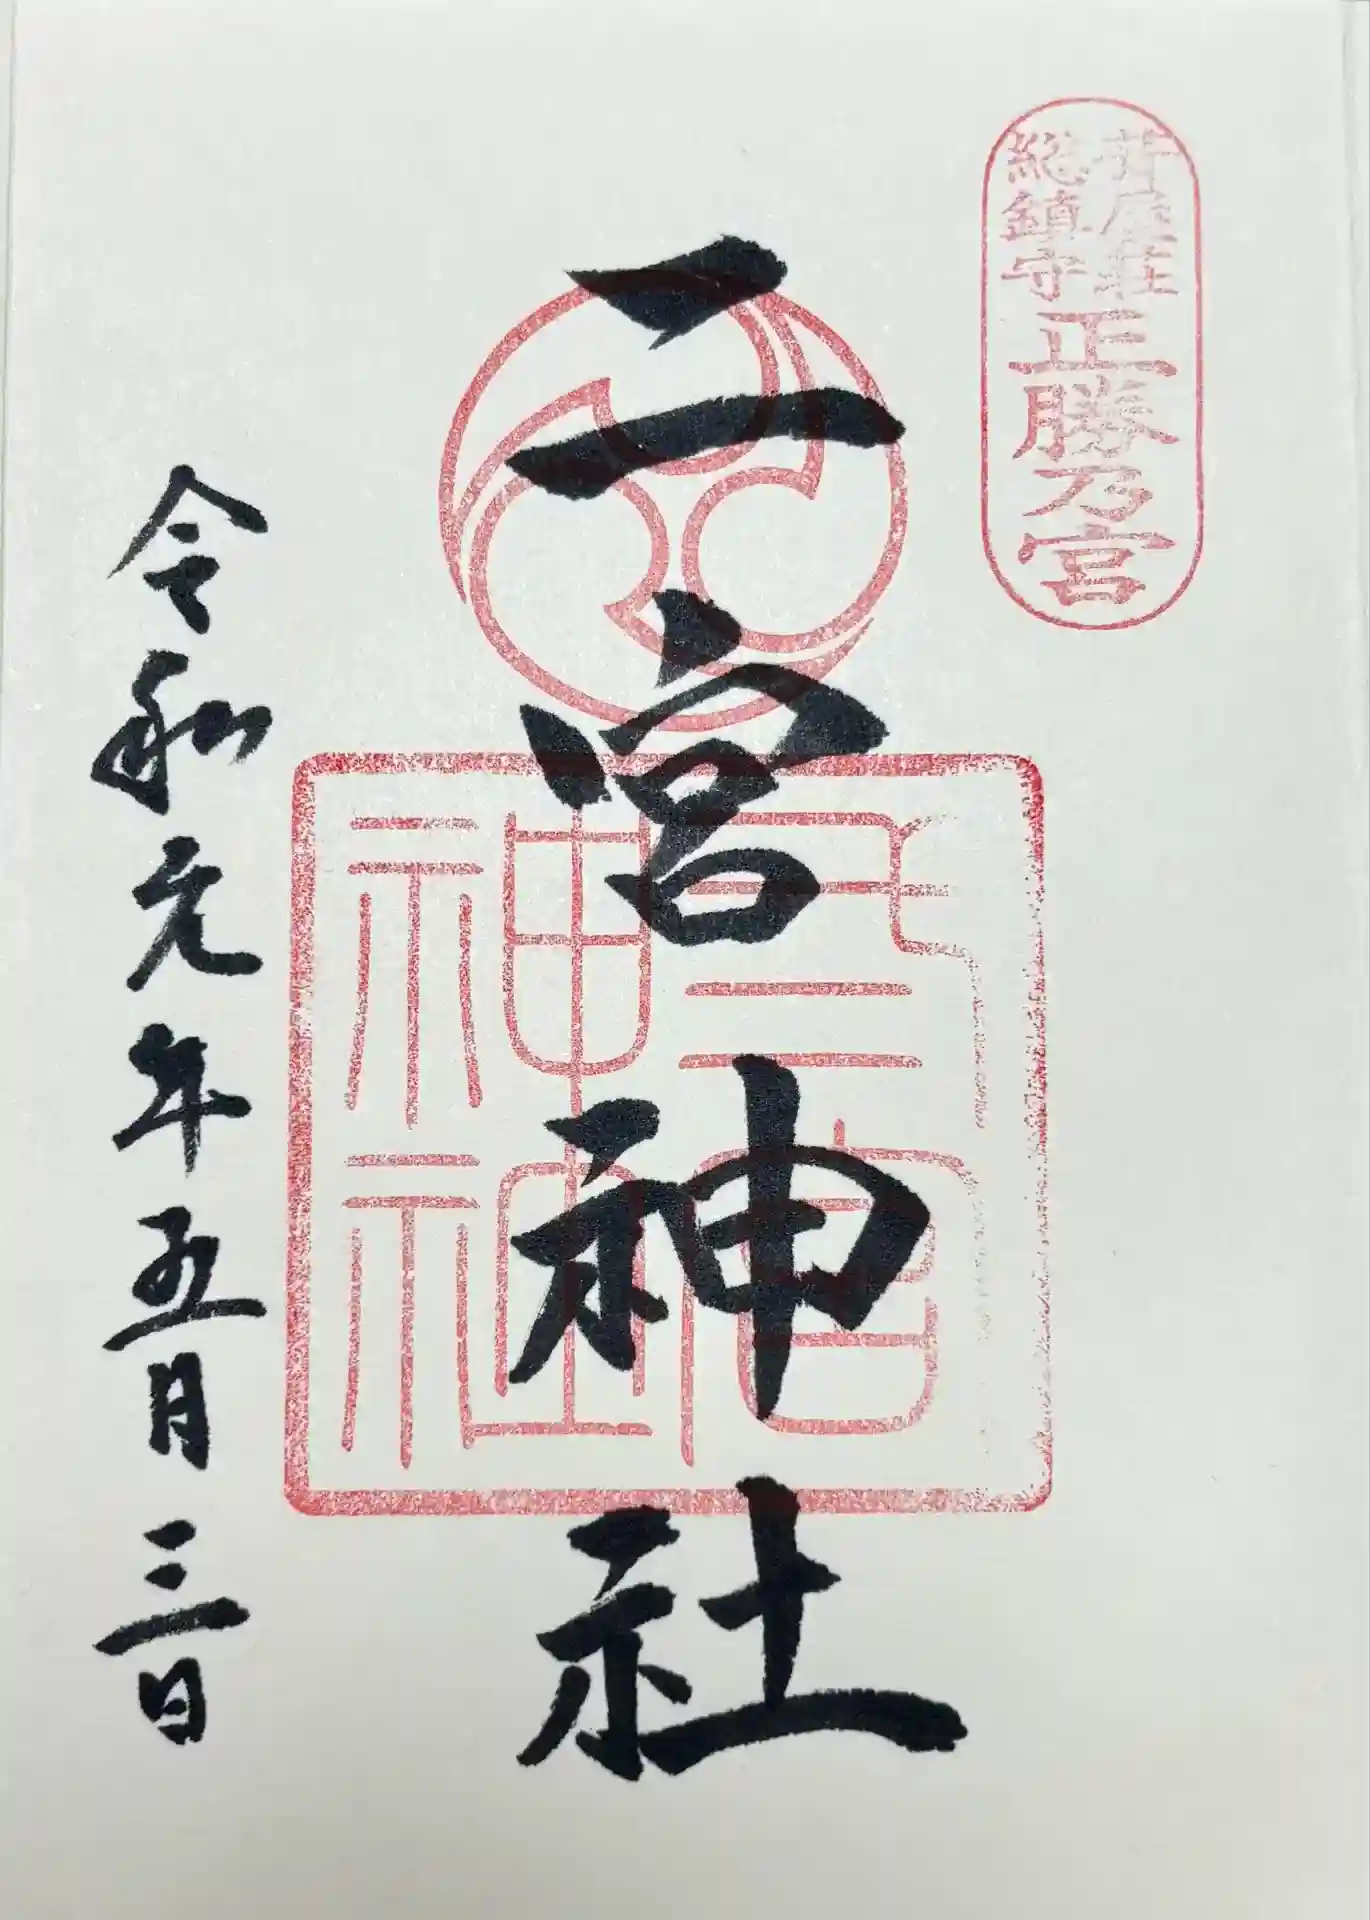 総鎮守
正勝乃宮
二宮神社
弍宮
神社
令和元年五月三日